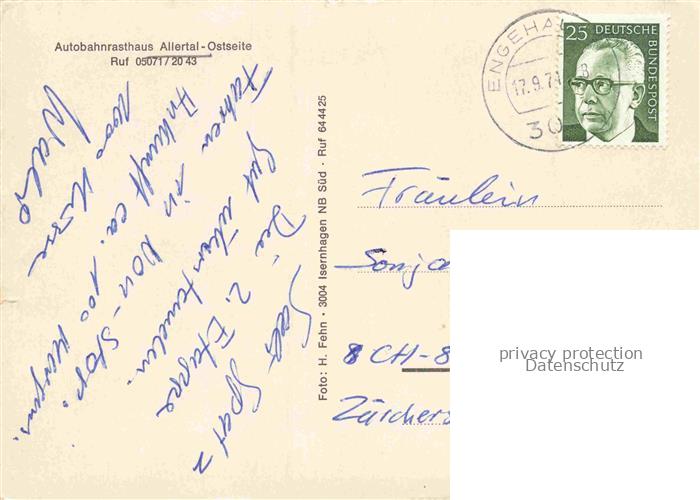 Autobahnrasthaus Allertal-Ostseite
Ruf 05071/20 43
Sali Spatz
Die 2. Etappe
gut überstanden.
Fahren in Non-Stop.
Ankunft ca. 100 morgens.
1000 Küsse
Foto: H. Fehn · 3004 Isernhagen NB Süd · Ruf 644425
ENGEHA
17.9.74
30
25 DEUTSCHE
BUNDESPOST
Fräulein
Sonja
8 CH-8
Zürichers
privacy protection
Datenschutz